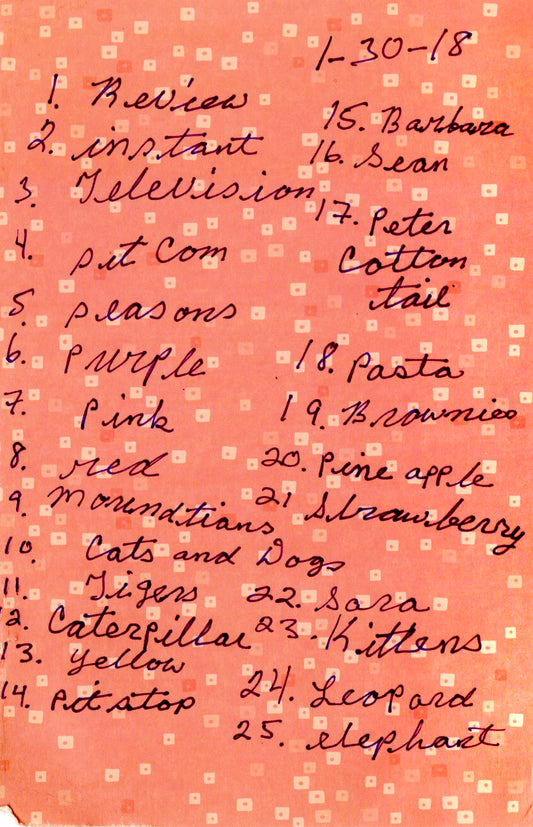 1-30-18
1. Review
2. instant
3. Television
4. sit Com
5. seasons
6. Purple
7. Pink
8. red
9. Moundtians
10. Cats and Dogs
11. Tigers
12. Caterpillar
13. Yellow
14. Pit stop
15. Barbara
16. Sean
17. Peter
Cotton
tail
18. Pasta
19. Brownies
20. Pine apple
21 Strawberry
22. Sara
23. Kittens
24. Leopard
25. elephant